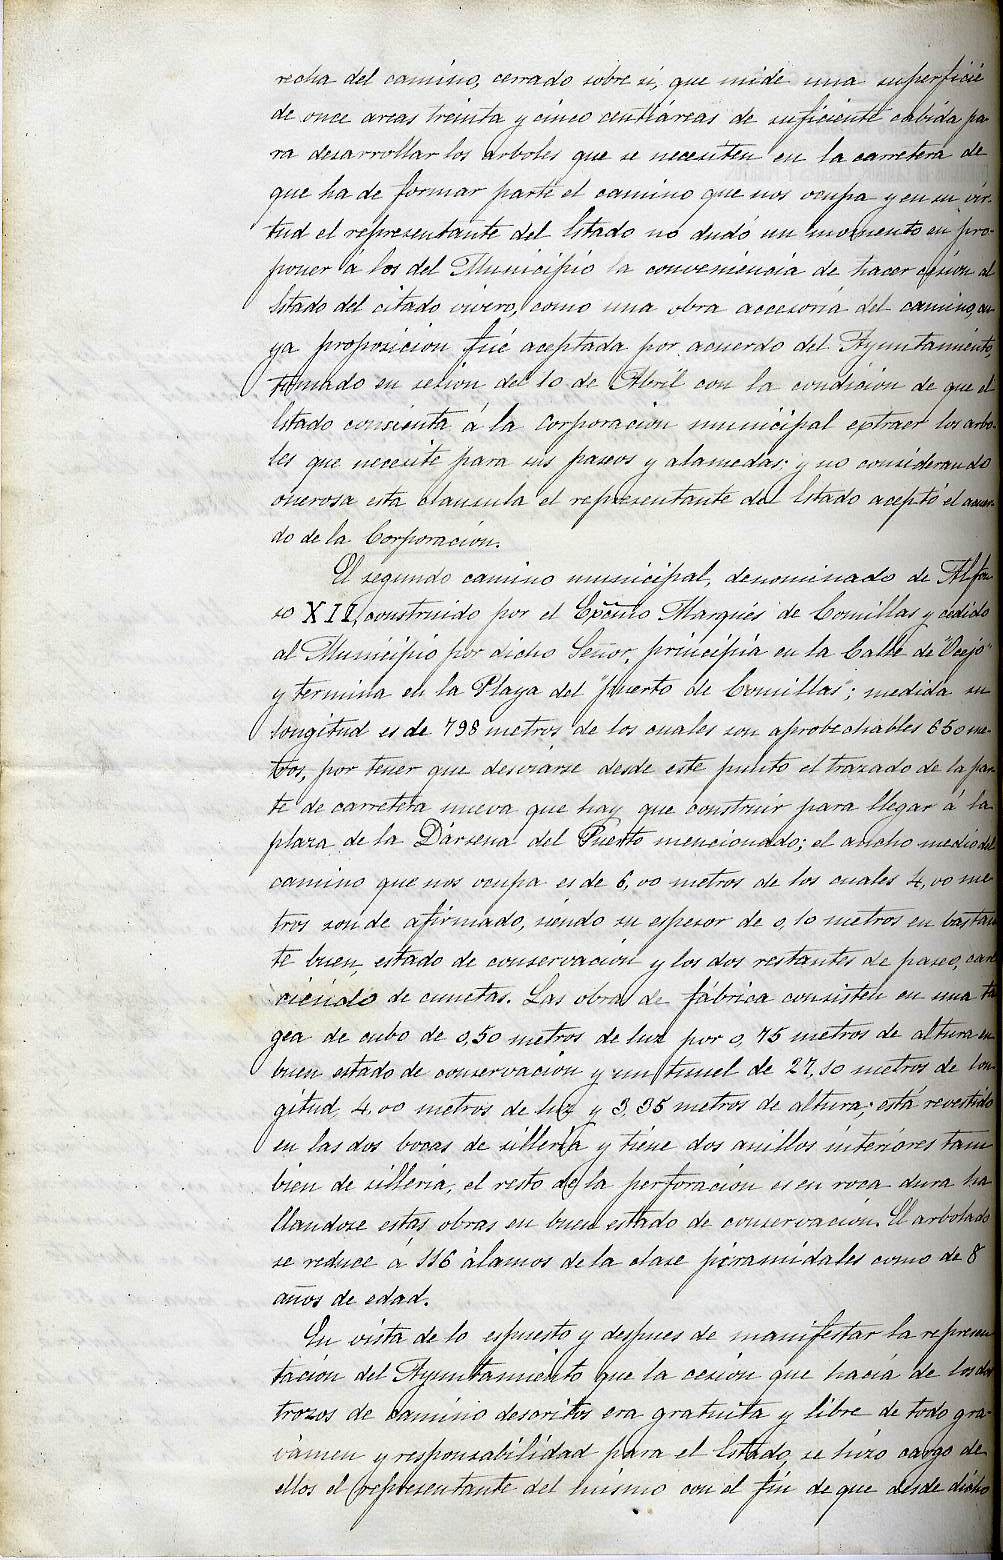 recha del camino, cerrado sobre si, que mide una superficie
de once areas treinta y cinco centiáreas de suficiente cabida pa
ra desarrollar los arboles que se necesiten en la carretera de
que ha de formar parte el camino que nos ocupa y en su vir-
tud el representante del Estado no dudó un momento en pro-
poner á los del Municipio la conveniencia de hacer cesion al
Estado del citado vivero, como una obra accesoria del camino, cu
ya proposicion fué aceptada por acuerdo del Ayuntamiento,
tomado en sesion del 10 de Abril con la condición de que el
Estado consienta á la corporacion municipal extraer los arbo-
les que necesite para sus paseos y alamedas; y no considerando
onerosa esta clausula el representante del Estado aceptó el acuer-
do de la Corporación.
El segundo camino municipal, denominado de Alfon
so XII, construido por el Excmo Marqués de Comillas y cedido
al Municipio por dicho Señor, principia en la Calle de "Ocejo"
y termina en la Playa del "puerto de Comillas"; medida su
longitud es de 798 metros de los cuales son aprobechables 650 me-
tros, por tener que desviarse desde este punto el trazado de la par
te de carretera nueva que hay que construir para llegar á la
plaza de la Dársena del Puerto mencionado; el ancho medio del
camino que nos ocupa es de 6,00 metros de los cuales 4,00 me
tros son de afirmado, siendo su espesor de 0,10 metros en bastan
te buen estado de conservación y los dos restantes de paseo, care
ciendo de cunetas. Las obras de fábrica consisten en una ta
gea de cubo de 0,50 metros de luz por 0,75 metros de altura en
buen estado de conservación y un tunel de 27,10 metros de lon-
gitud, 4,00 metros de luz y 3,35 metros de altura; está revestido
en las dos bocas de silleria y tiene dos anillos interiores tam
bien de silleria, el resto de la perforación es en roca dura ha
llandose estas obras en buen estado de conservación. El arbolado
se reduce á 116 álamos de la clase piramidales como de 8
años de edad.
En vista de lo espuesto y despues de manifestar la represen
tación del Ayuntamiento que la cesión que hacia de los dos
trozos de camino descritos era gratuita y libre de todo gra-
vámen y responsabilidad para el Estado, se hizo cargo de
ellos el representante del mismo con el fin de que desde dicho